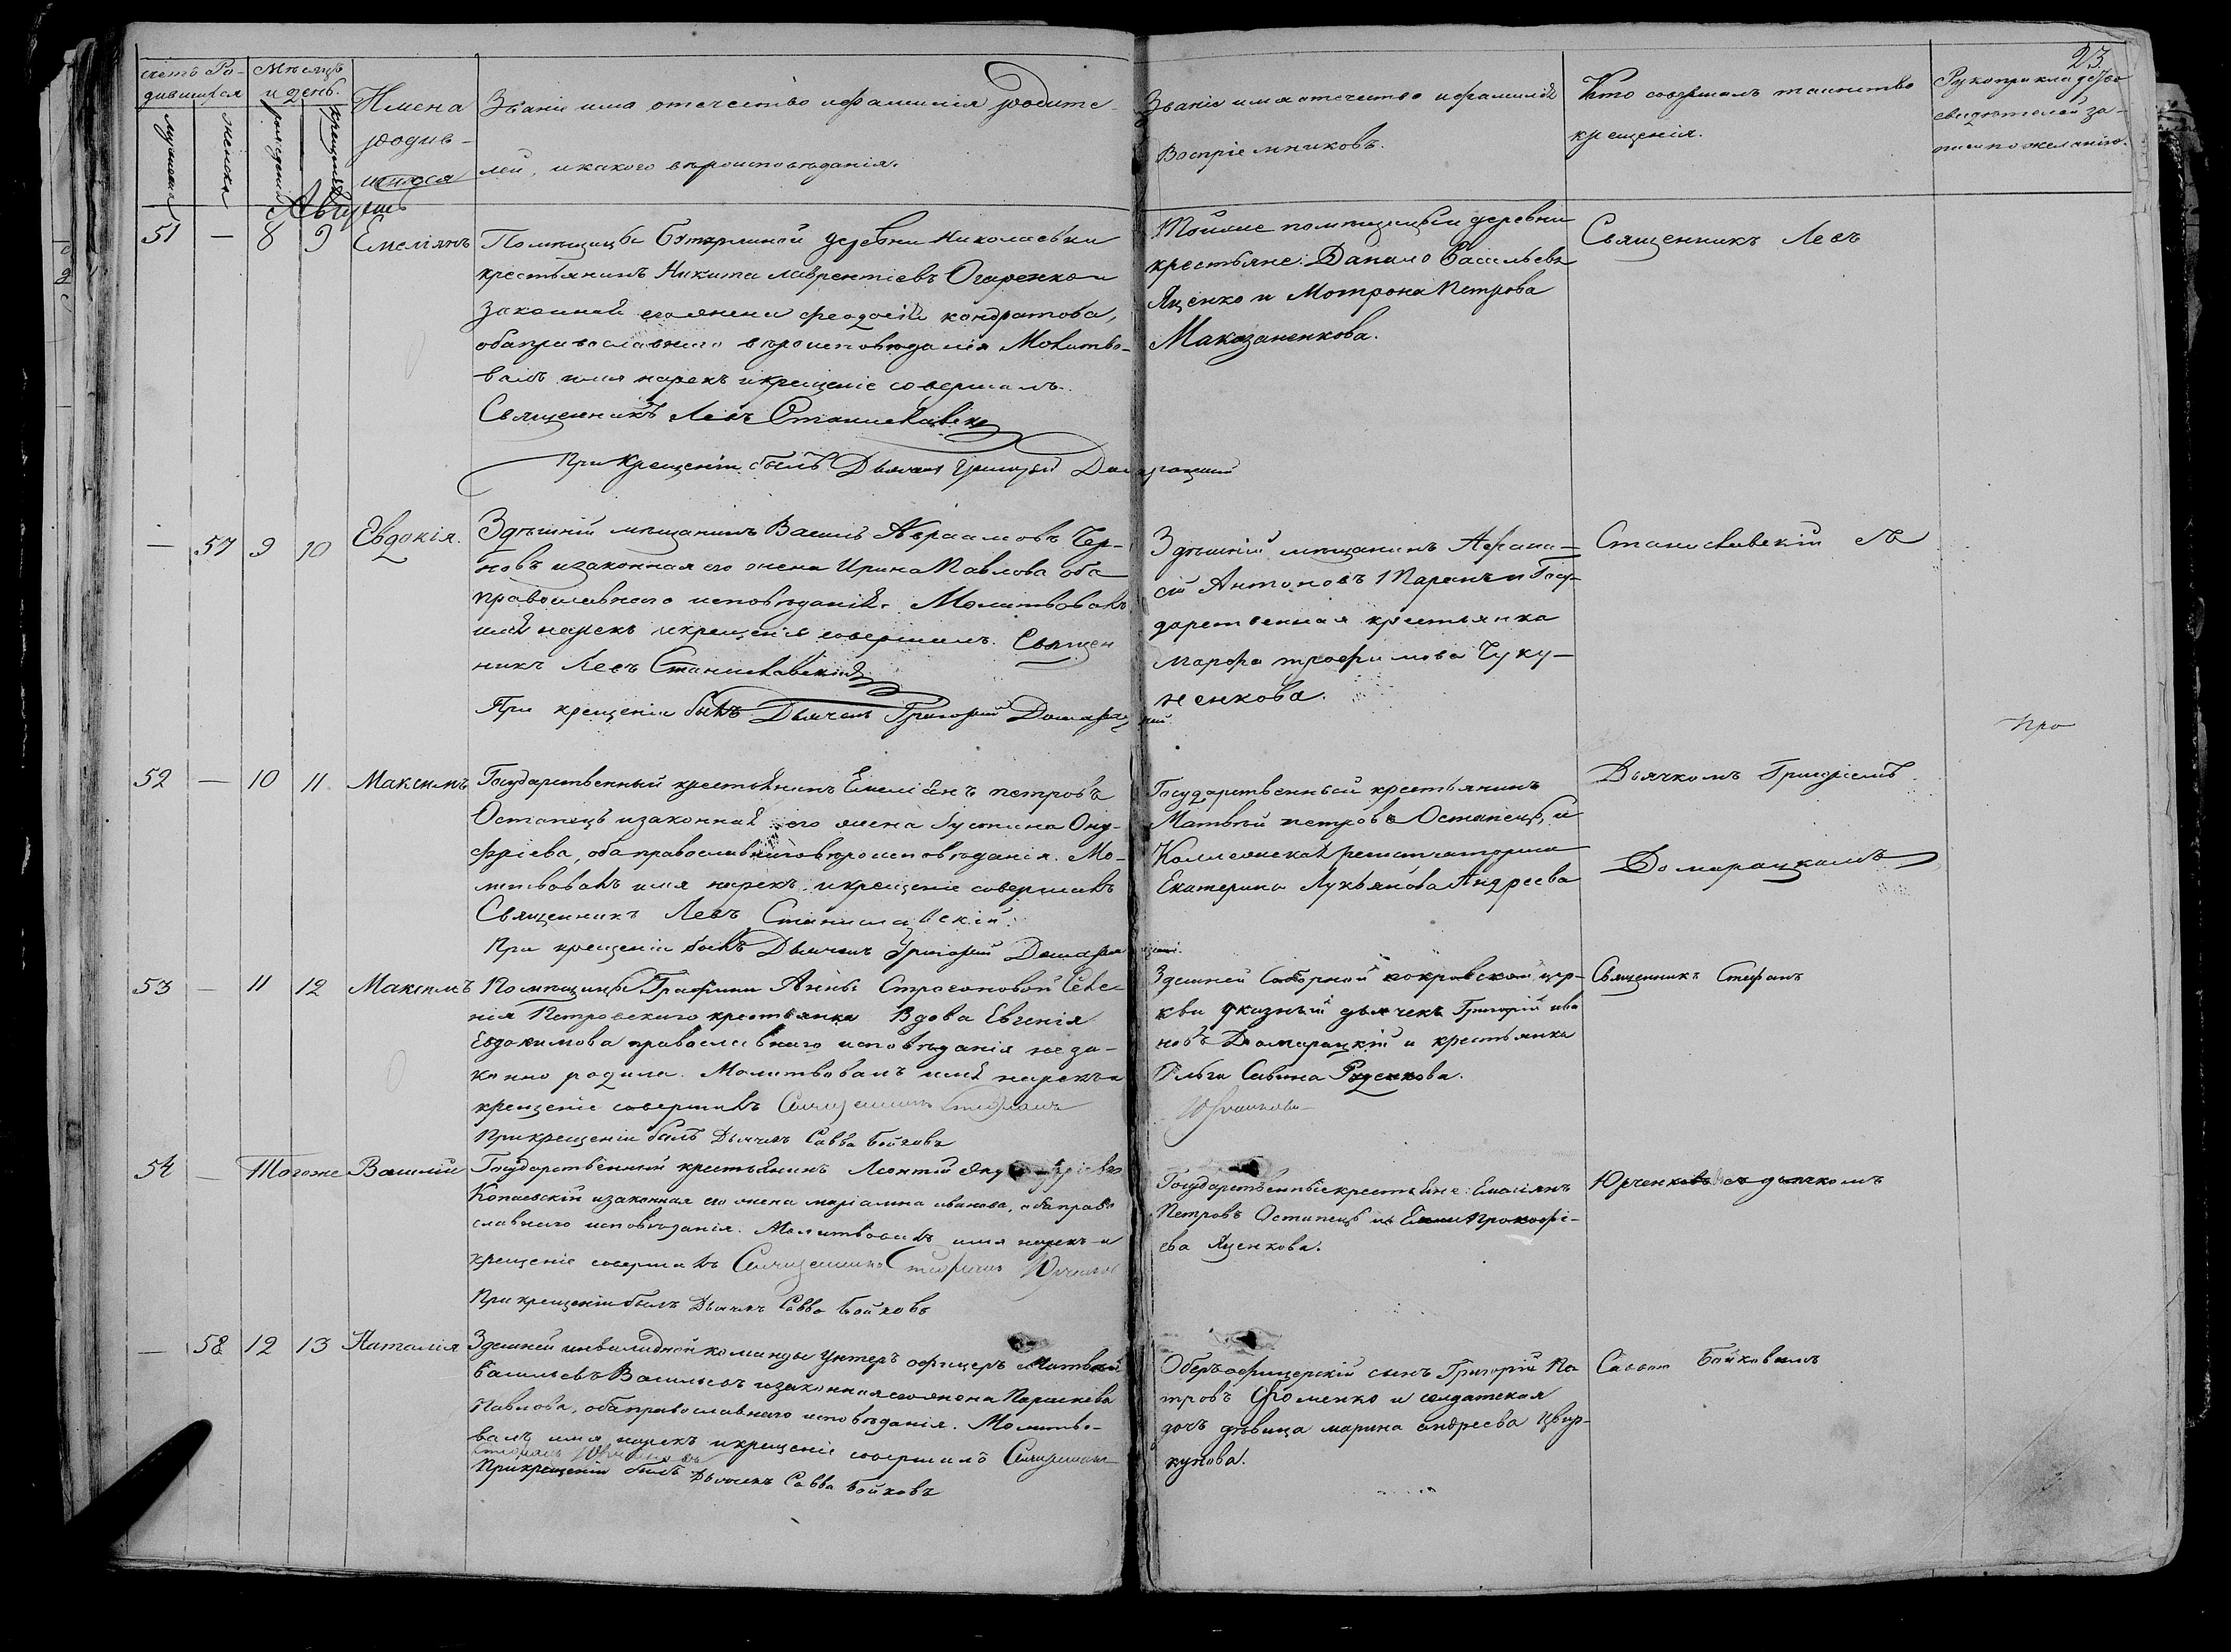 23.
счетъ Ро-
дившихся
мужеска
женска
Мѣсяцъ
и день.
рожденія
крещенія
Имена
родив-
шихся
Званіе имя отечество и фамилія родите-
лей, и какого вѣроисповѣданія.
Званіе имя отечество и фамилія
Воспріемниковъ.
Кто совершалъ таинство
крещенія.
Рукоприкладство
свидѣтелей за-
писи по желанію.
Августъ
51 — 8 9 Емеліянъ
Помѣщицы деревни Николаевки
крестьянинъ Никита Лаврентіевъ Огаренко и
законная его жена Феодосія Кондратова,
оба православнаго вѣроисповѣданія Молитво-
валъ имя нарекъ и крещеніе совершалъ
Священникъ Левъ Станиславскій
При крещеніи былъ Дьячекъ Григорій Домарацкій
Тойже помѣщицы деревни
крестьяне: Данило Васильевъ
Яценко и Мотрона Петрова
Маказаненкова.
Священникъ Левъ
— 57 9 10 Евдокія.
Здѣшній мѣщанинъ Василь Авраамовъ Чер-
новъ и законная его жена Ирина Павлова оба
православнаго исповѣданія. Молитвовалъ
имя нарекъ и крещеніе совершилъ. Священ
никъ Левъ Станиславскій
При крещеніи былъ Дьячекъ Григорій Домарацкій
Здѣшній мѣщанинъ Афана-
сій Антоновъ и Госу-
дарственная крестьянка
Марфа Трофимова Чуку-
ненкова.
Станиславскій съ
Про
52 — 10 11 Максимъ
Государственный крестьянинъ Емеліянъ Петровъ
Остапецъ и законная его жена Іустина Ону-
фріева, оба православнаго вѣроисповѣданія. Мо-
литвовалъ имя нарекъ и крещеніе совершалъ
Священникъ Левъ Станиславскій.
При крещеніи былъ Дьячекъ Григорій Домарацкій.
Государственный крестьянинъ
Матвѣй Петровъ Остапецъ, и
Коллежская регистраторша
Екатерина Лукьянова Андреева
Дьячкомъ Григоріемъ
Домарацкимъ
53 — 11 12 Максимъ
Помѣщицы Графини Анны Строгоновой Селе-
нія Петровскаго крестьянка Вдова Евгенія
Евдокимова православнаго исповѣданія неза-
конно родила. Молитвовалъ имя нарекъ и
крещеніе совершилъ Священникъ Стефанъ
При крещеніи былъ Дьячекъ Савва Бойковъ
Здѣшней Соборной Покровской цер-
кви указный дьячекъ Григорій Ива
новъ Домарацкій и крестьянка
Ольга Савина Руденкова.
Юрченковъ
Священникъ Стефанъ
54 — Тогоже Василій
Государственный крестьянинъ Леонтій
Копаевскій и законная его жена Маріанна Иванова, оба право
славнаго исповѣданія. Молитвовалъ имя нарекъ и
крещеніе совершилъ Священникъ Стефанъ Юрченко
При крещеніи былъ Дьячекъ Савва Бойковъ
Государственные крестьяне: Емеліянъ
Петровъ Остапецъ и Прокофі-
ева Яценкова.
Юрченковъ съ дьячкомъ
— 58 12 13 Наталія
Здѣшней инвалидной команды Унтеръ офицеръ Матвѣй
Васильевъ Васильевъ и законная его жена Параскева
Павлова, оба православнаго исповѣданія. Молитво-
валъ имя нарекъ и крещеніе совершилъ Священникъ
Стефанъ Юрченковъ
При крещеніи былъ Дьячекъ Савва Бойковъ
Оберъ офицерскій сынъ Григорій Пе
тровъ Фоменко и солдатская
дочь дѣвица Марина Андреева Цвир-
кунова.
Саввою Бойковымъ